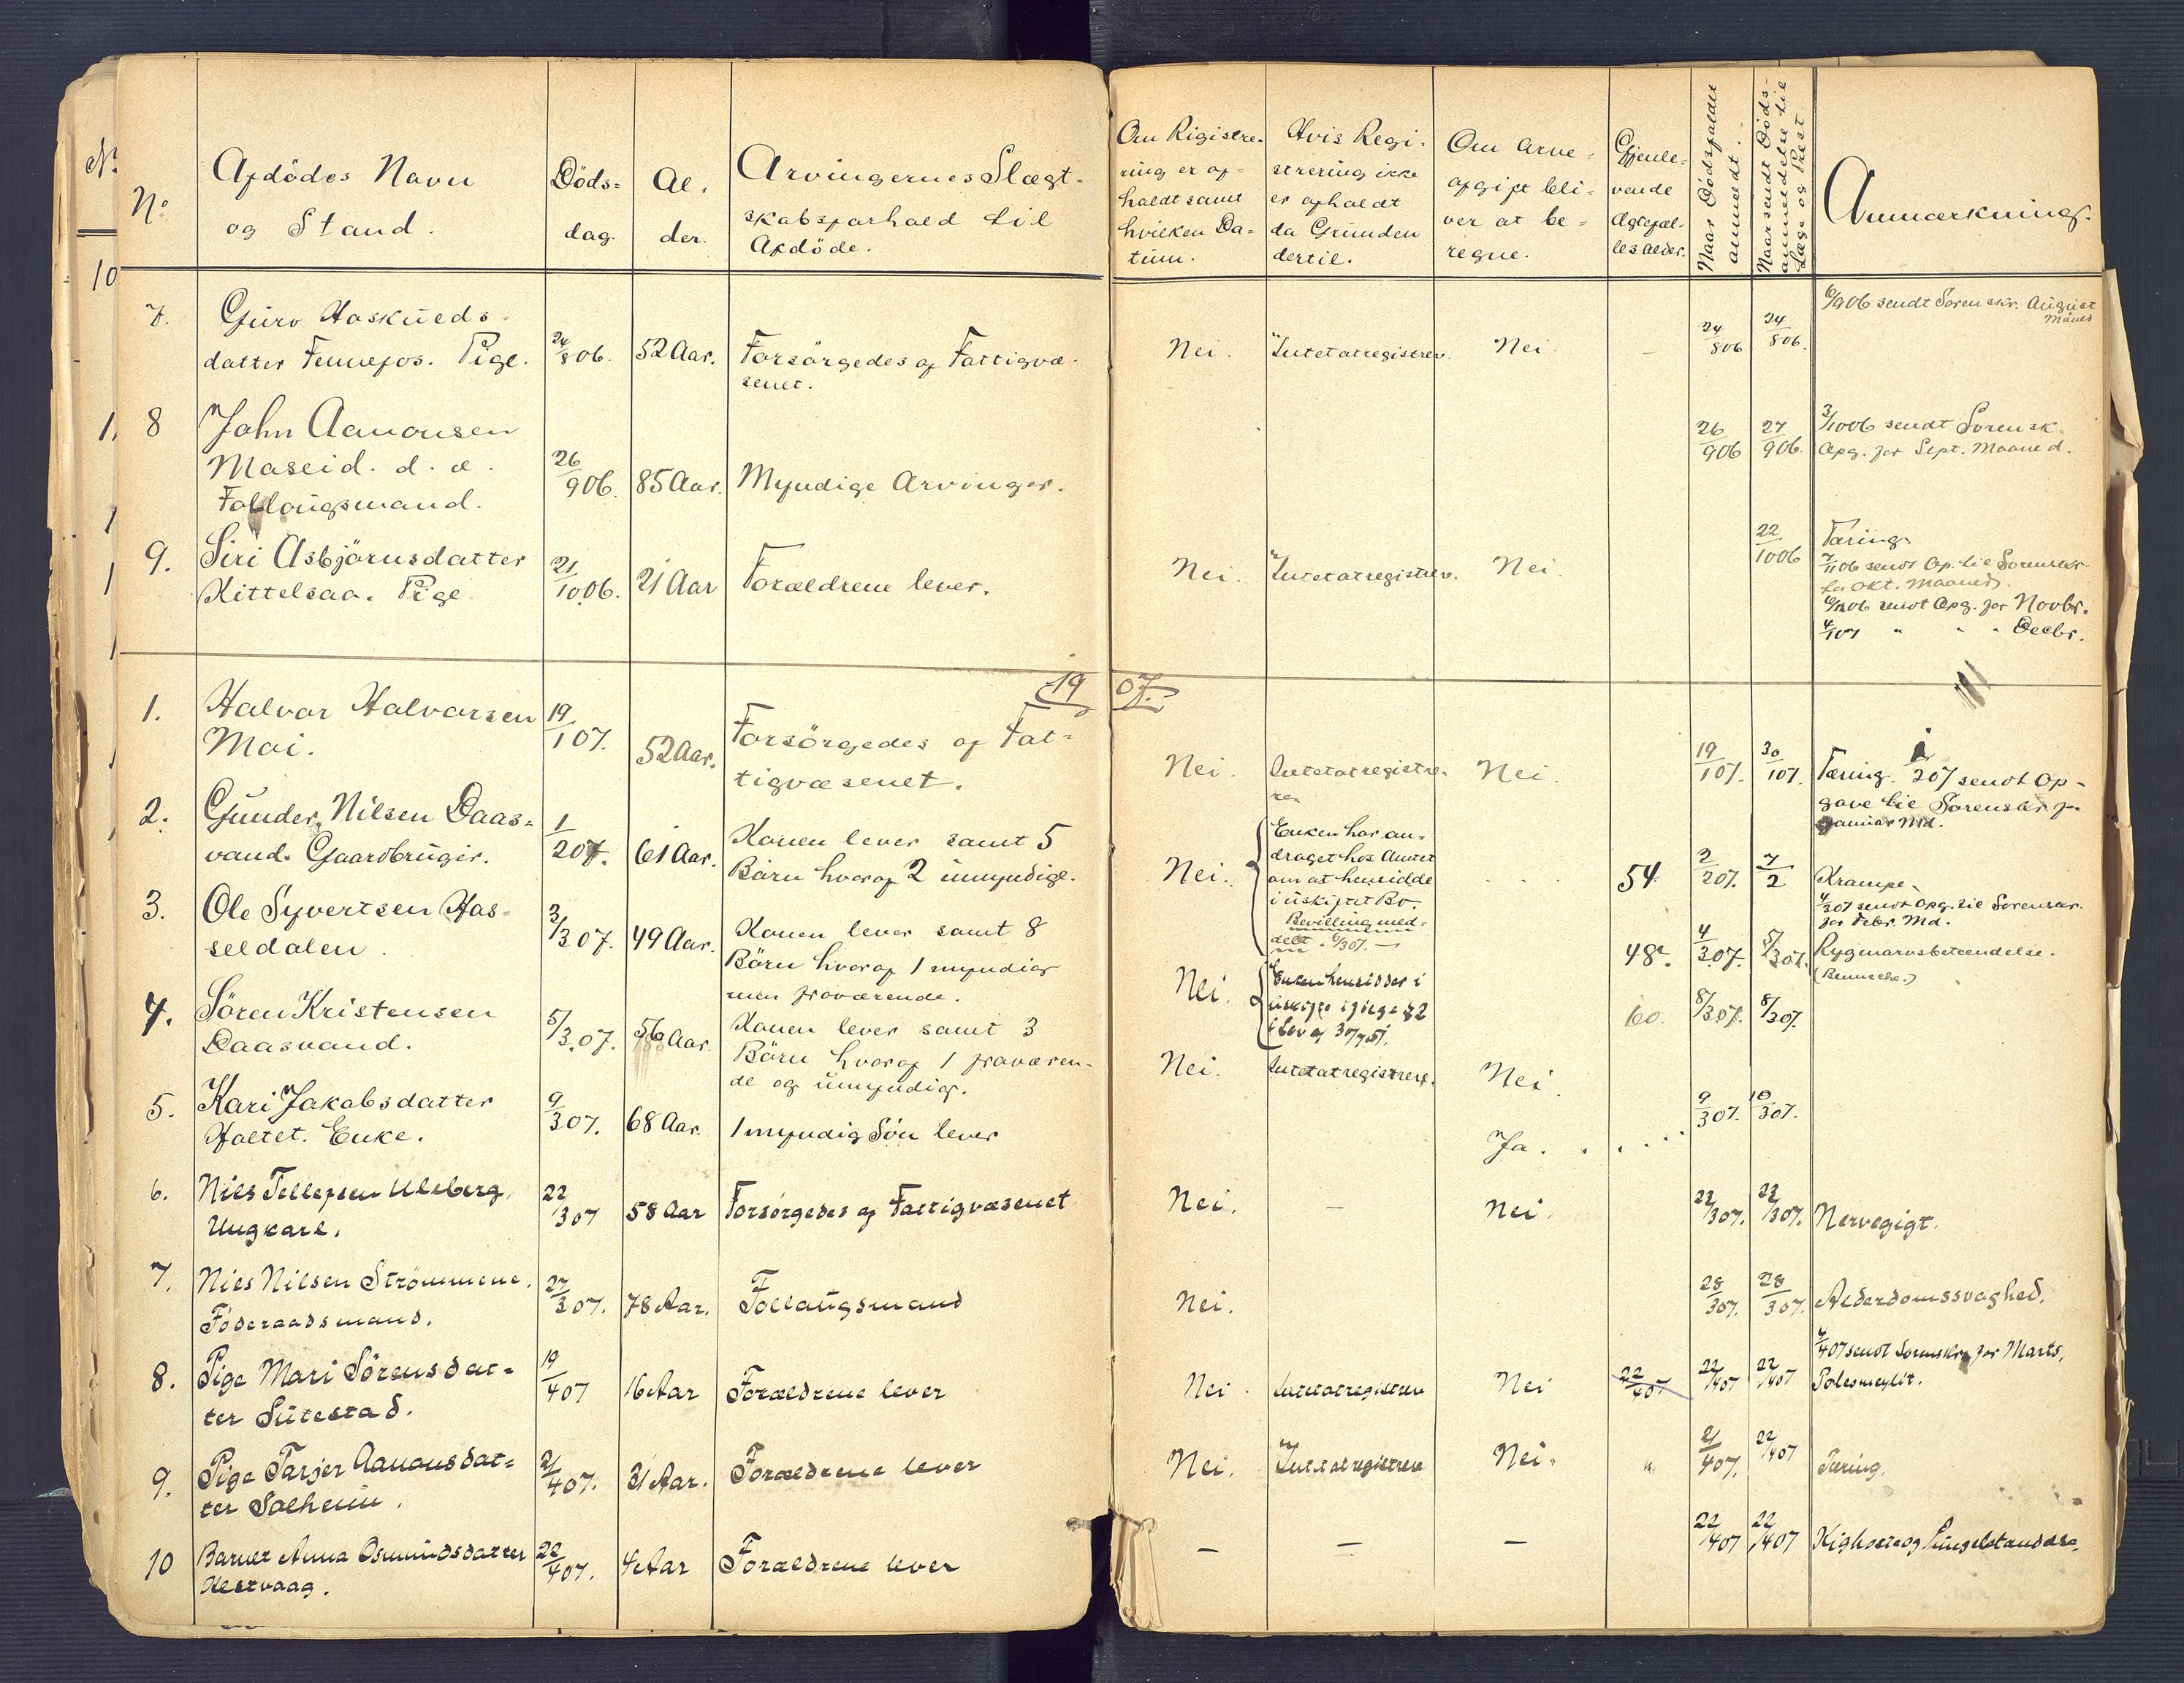 No
Afdödes Navn
og Stand.
Döds-
dag.
Al-
der.
Arvingernes Slægt-
skabsforhold til
Afdöde.
Om Rigistre-
ring er af-
holdt samt
hvilken Da-
tum.
Hvis Regi-
strering ikke
er afholdt
da Grunden
dertil.
Om Arve-
afgift bli-
ver at be-
regne.
Gjenle-
vende
Ægtefæl-
les alder.
Naar Dödsfaldet
anmeldt.
Naar sendt Döds-
anmeldelse til
Læge og Prest
Anmærkning.
10
7.
Guro Aaskueds-
datter Fennefos. Pige.
24/8 06.
52 Aar.
Forsörgedes af Fattigvæ-
senet.
Nei.
Intet at registrer.
Nei
24/8 06
24/8 06.
6/9 06 sendt Sorenskr. August
Måned
8
John Aanonsen
Maseid. d. æ.
Follougsmand.
26/9 06.
85 Aar.
Myndige Arvinger.
26/9 06
27/9 06.
3/10 06 sendt Sorensk.
Opg. for Sept. Maaned.
9.
Siri Asbjörnsdatter
Kittelsaa. Pige
21/10 06.
21 Aar
Forældrene lever.
Nei.
Intet at registrer.
Nei.
22/10 06
Tæring
7/11 06 sendt Op. til Sorenskr
for Okt. Maaned.
6/12 06 sendt Opg. for Novbr.
4/1 07 " " " Decbr.
1907.
1.
Halvor Halvorsen
Moi.
19/1 07.
52 Aar.
Forsörgedes af Fat-
tigvæsenet.
Nei.
Intet at registre-
re
Nei.
19/1 07.
30/1 07.
Tæring. 1/2 07 sendt Op-
gave til Sorenskr for
Januar Md.
2.
Gunder Nilsen Daas-
vand. Gaardbruger.
1/2 07.
61 Aar.
Konen lever samt 5
Börn hvoraf 2 umyndige.
Nei.
Enken har an-
draget hos Amtet
om at hensidde
i uskiftet Bo.
Bevilling med-
delt 6/3 07.
54
2/2 07.
7/2
Krampe.
4/3 07 sendt Opg. til Sorenskr.
for Febr. Md.
3.
Ole Syvertsen Has-
seldalen
3/3 07.
49 Aar.
Konen lever samt 8
Börn hvoraf 1 myndig
men fraværende.
Nei.
Enken hensidder i
uskifte ifölge § 2
i Lov af 30/7 51.
48.
4/3 07.
5/3 07.
Rygmarvsbetændelse.
4.
Sören Kristensen
Daasvand.
5/3 07.
56 Aar.
Konen lever samt 3
Börn hvoraf 1 fraværen-
de og umyndig.
Nei.
Intet at registrere.
Nei.
60.
8/3 07.
8/3 07.
5.
Kari Jakobsdatter
Haltet. Enke.
9/3 07.
68 Aar.
1 myndig Sön lever
Ja.
9/3 07.
10/3 07.
6.
Nils Tellefsen Uleberg,
Ungkarl.
22/3 07
58 Aar
Forsörgedes af Fattigvæsenet
Nei.
—
Nei.
22/3 07.
22/3 07.
Nervegigt.
7.
Nils Nilsen Strömmene.
Föderaadsmand.
27/3 07.
78 Aar.
Follaugsmand
Nei.
28/3 07.
28/3 07.
Alderdomssvaghed.
4/4 07 sendt Sorenskr for Marts,
8.
Pige Mari Sörensdat-
ter Sutestad.
19/4 07
16 Aar
Forældrene lever
Nei.
Intet at registrer
Nei
22/4 07
22/4 07
22/4 07
9.
Pige Tarjer Aanonsdat-
ter Solheim.
21/4 07.
31 Aar.
Forældrene lever
Nei.
Intet at registrere
Nei.
"
21/4 07.
22/4 07
Tæring.
10
Barnet Anna Osmundsdatter
Hestvaag.
22/4 07.
4 Aar
Forældrene lever
—
—
—
22/4 07
22/4 07
Kighoste og